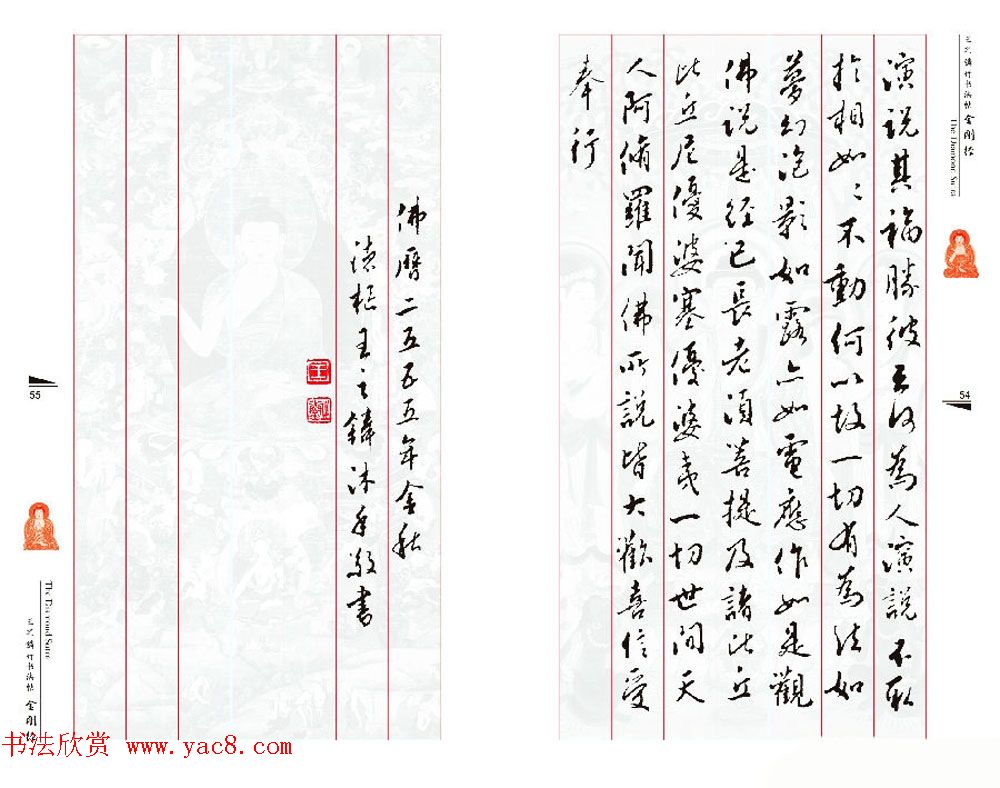 王之鏻行书法帖 金刚经
The Diamond Sutra
演说其福勝彼云何為人演説不取
於相如〻不動何以故一切有為法如
夢幻泡影如露亦如電應作如是觀
佛说是经已長老須菩提及諸比丘
比丘尼優婆塞優婆夷一切世间天
人阿脩羅聞佛所說皆大歡喜信受
奉行
54
佛曆二五五五年金秋
王之鏻沐手敬書
55
The Diamond Sutra
王之鏻行书法帖 金刚经
书法欣赏 www.yac8.com